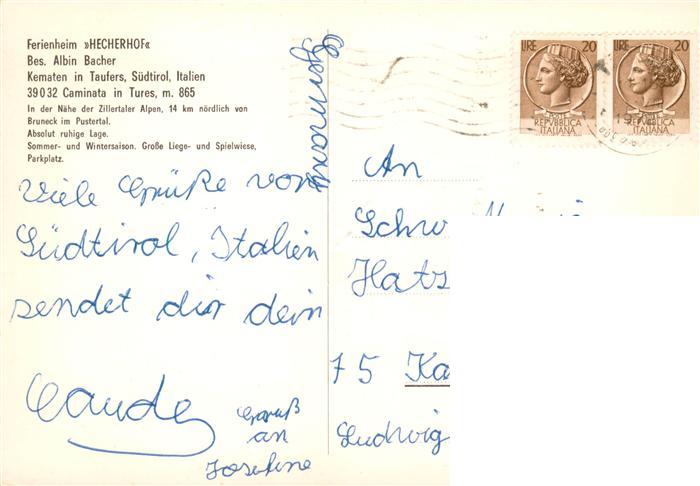 Ferienheim »HECHERHOF«
Bes. Albin Bacher
Kematen in Taufers, Südtirol, Italien
39032 Caminata in Tures, m. 865
In der Nähe der Zillertaler Alpen, 14 km nördlich von
Bruneck im Pustertal.
Absolut ruhige Lage.
Sommer- und Wintersaison. Große Liege- und Spielwiese,
Parkplatz.
Viele Grüße von
Südtirol, Italien
sendet dir dein
Gruß
an
Josefine
LIRE 20
POSTE
REPVBBLICA
ITALIANA
LIRE 20
REPVBBLICA
ITALIANA
An
Schw
Hats
75 Ka
Ludwig